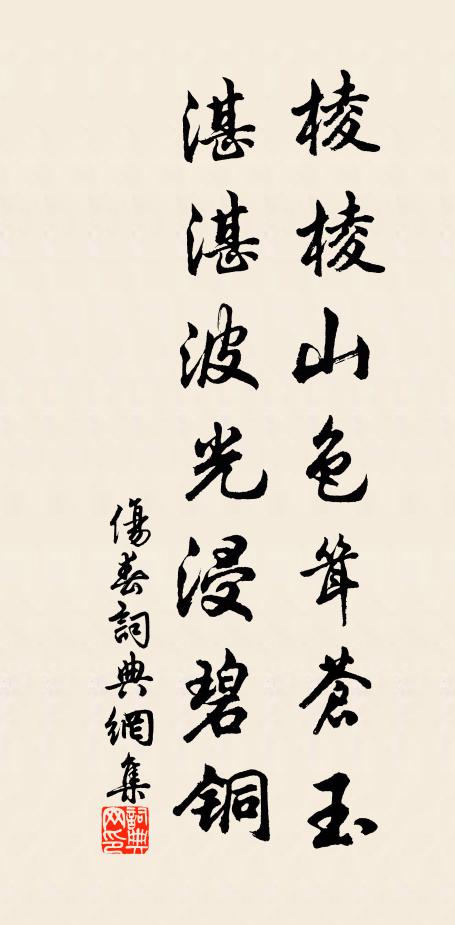 棱棱山色耸苍玉
湛湛波光浸碧铜
傷春詞典網集
詞典网印